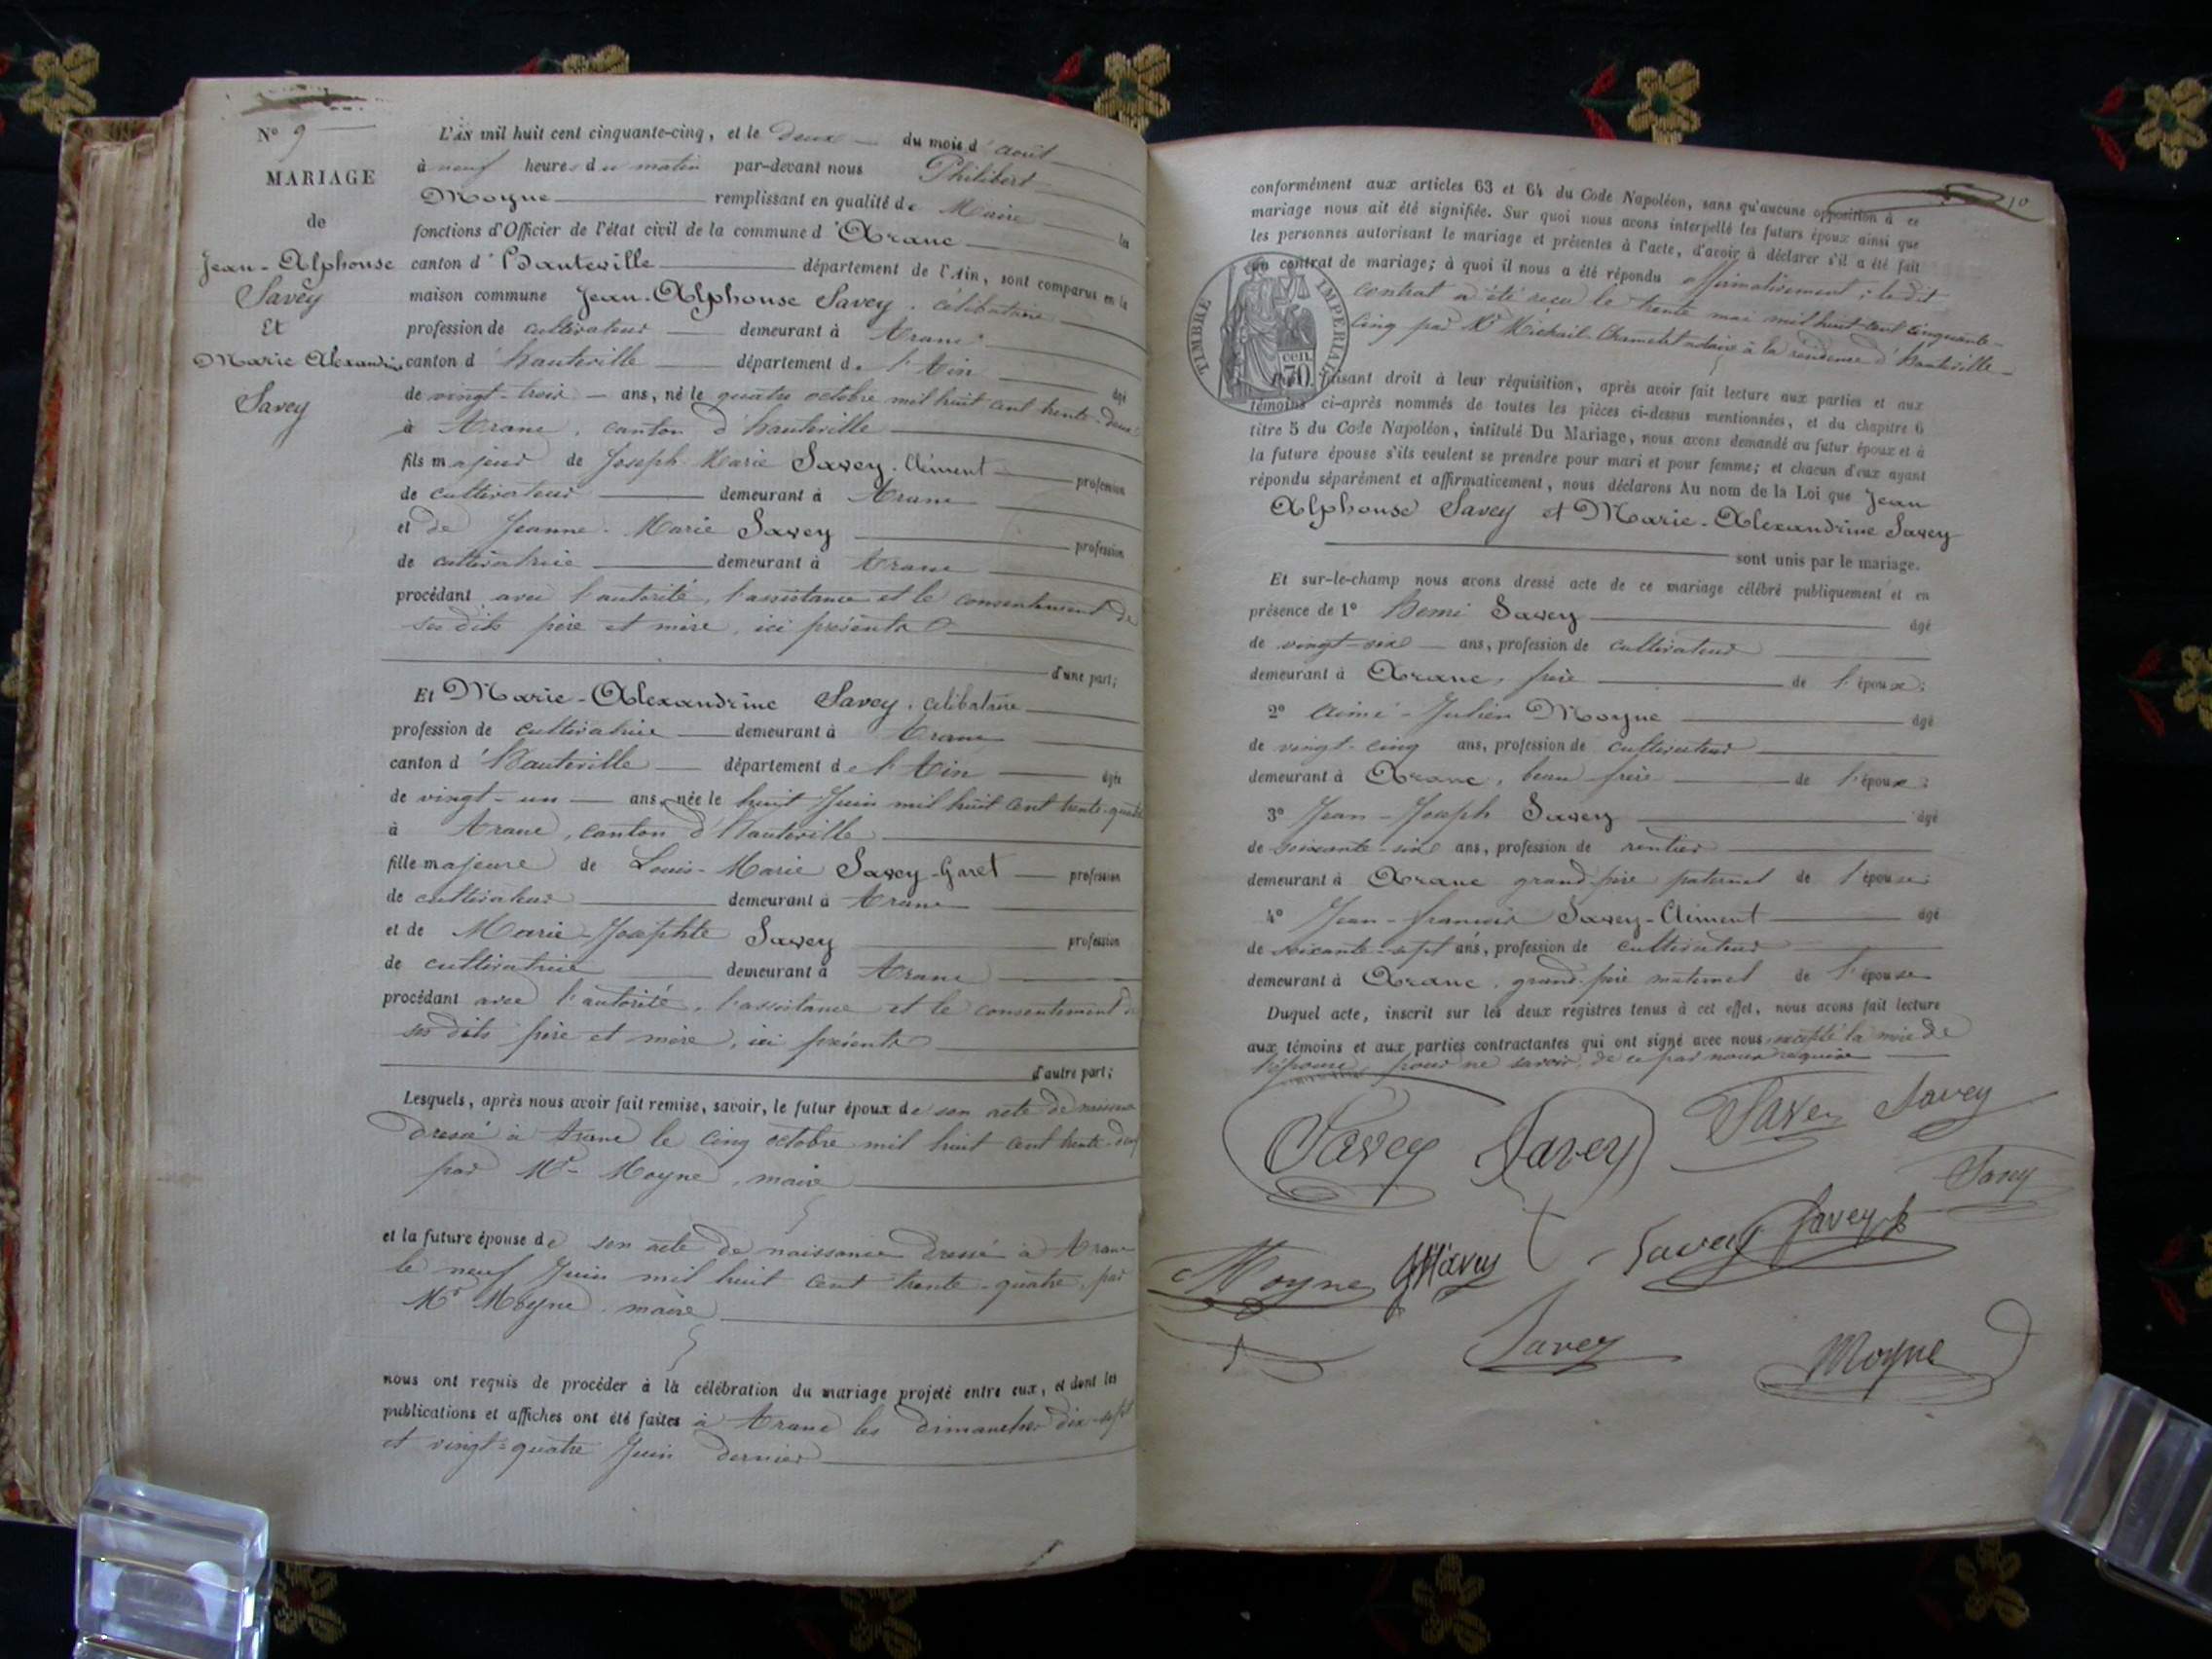 N° 9
MARIAGE
de
Jean-Alphonse
Savey
Et
Marie Alexandrine
Savey
L'an mil huit cent cinquante-cinq, et le deux du mois d'août
à neuf heures du matin par-devant nous Philibert
Moyne remplissant en qualité de Maire les
fonctions d'Officier de l'état civil de la commune d'Aranc
canton d'hauteville département de l'Ain, sont comparus en la
maison commune Jean-Alphonse Savey, célibataire
profession de cultivateur demeurant à Aranc
canton d'hauteville département de l'Ain âgé
de vingt-trois ans, né le quatre octobre mil huit cent trente-deux
à Aranc, canton d'hauteville
fils majeur de Joseph-Marie Savey-Clément profession
de cultivateur demeurant à Aranc
et de Jeanne-Marie Savey profession
de cultivatrice demeurant à Aranc
procédant avec l'autorité, l'assistance et le consentement de
ses dits père et mère, ici présents
d'une part;
Et Marie-Alexandrine Savey, célibataire
profession de cultivatrice demeurant à Aranc
canton d'hauteville département de l'Ain âgée
de vingt-un ans, née le huit Juin mil huit cent trente-quatre
à Aranc, canton d'hauteville
fille majeure de Louis-Marie Savey-Garet profession
de cultivateur demeurant à Aranc
et de Marie-Josephte Savey profession
de cultivatrice demeurant à Aranc
procédant avec l'autorité, l'assistance et le consentement de
ses dits père et mère, ici présents
d'autre part;
Lesquels, après nous avoir fait remise, savoir, le futur époux de son acte de naissance
dressé à Aranc le cinq octobre mil huit cent trente-deux
par Mr Moyne, maire
et la future épouse de son acte de naissance dressé à Aranc
le neuf Juin mil huit cent trente-quatre, par
Mr Moyne, maire
nous ont requis de procéder à la célébration du mariage projeté entre eux, et dont les
publications et affiches ont été faites à Aranc les dimanches dix-sept
et vingt-quatre Juin dernier
10
conformément aux articles 63 et 64 du Code Napoléon, sans qu'aucune opposition à ce
mariage nous ait été signifiée. Sur quoi nous avons interpellé les futurs époux ainsi que
les personnes autorisant le mariage et présentes à l'acte, d'avoir à déclarer s'il a été fait
un contrat de mariage; à quoi il nous a été répondu affirmativement; le dit
contrat a été reçu le trente mai mil huit cent cinquante-
cinq par Me Chamelet notaire à la résidence d'hauteville
TIMBRE IMPERIAL
70 cen.
faisant droit à leur réquisition, après avoir fait lecture aux parties et aux
témoins ci-après nommés de toutes les pièces ci-dessus mentionnées, et du chapitre 6
titre 5 du Code Napoléon, intitulé Du Mariage, nous avons demandé au futur époux et à
la future épouse s'ils veulent se prendre pour mari et pour femme; et chacun d'eux ayant
répondu séparément et affirmativement, nous déclarons Au nom de la Loi que Jean
Alphonse Savey et Marie-Alexandrine Savey
sont unis par le mariage.
Et sur-le-champ nous avons dressé acte de ce mariage célébré publiquement et en
présence de 1° Savey âgé
de vingt-six ans, profession de cultivateur
demeurant à Aranc, frère de l'épouse;
2° Aimé-Julien Moyne âgé
de vingt-cinq ans, profession de cultivateur
demeurant à Aranc, beau frère de l'époux;
3° Jean-Joseph Savey âgé
de soixante-six ans, profession de rentier
demeurant à Aranc grand-père paternel de l'épouse;
4° Jean-françois Savey-Clément âgé
de soixante-sept ans, profession de cultivateur
demeurant à Aranc, grand-père maternel de l'épouse
Duquel acte, inscrit sur les deux registres tenus à cet effet, nous avons fait lecture
aux témoins et aux parties contractantes qui ont signé avec nous excepté la mère de
l'épouse, pour ne savoir, de ce par nous requise
Savey Savey Savey Savey
Savey
Moyne Savey Savey
Savey Moyne